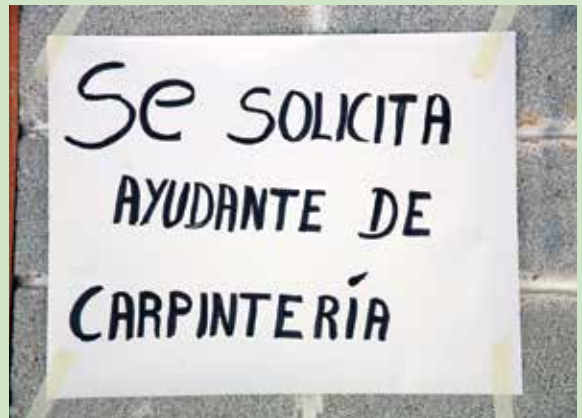 Se SOLICITA
AYUDANTE DE
CARPINTERÍA